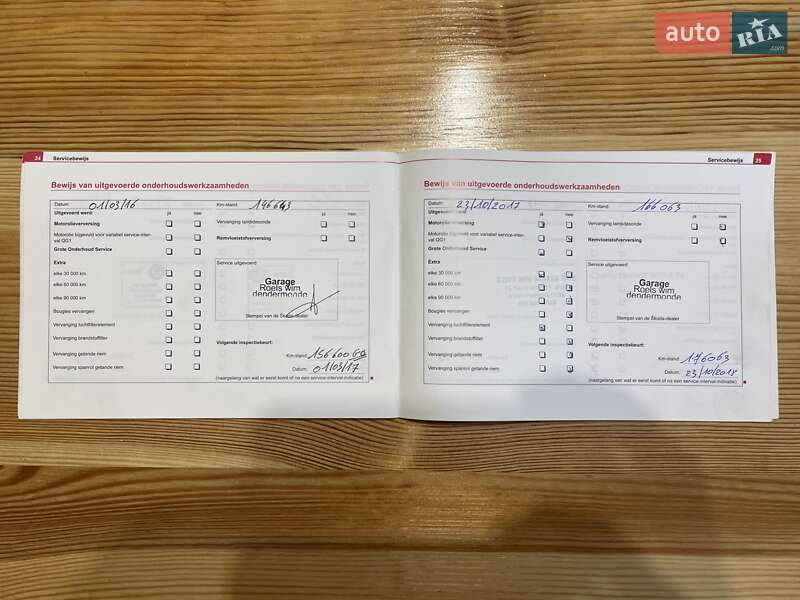 auto RIA .com
24 Servicebewijs
Bewijs van uitgevoerde onderhoudswerkzaamheden
Datum: 01/03/16 Km-stand: 146643
Uitgevoerd werd: ja nee ja nee
Motorolieverversing Vervanging lambdasonde
Motorolie bijgevuld voor variabel service-inter-
val QG1 Remvloeistofverversing
Grote Onderhoud Service
Extra Service uitgevoerd:
elke 30 000 km
elke 60 000 km
elke 90 000 km
Garage
Roels wim
dendermonde
Bougies vervangen Stempel van de Škoda-dealer
Vervanging luchtfilterelement
Vervanging brandstoffilter Volgende inspectiebeurt:
Vervanging getande riem Km-stand: 156600
Vervanging spanrol getande riem Datum: 01/03/17
(naargelang van wat er eerst komt of na een service-interval-indicatie)
Servicebewijs 25
Bewijs van uitgevoerde onderhoudswerkzaamheden
Datum: 23/10/2017 Km-stand: 166063
Uitgevoerd werd: ja nee ja nee
Motorolieverversing Vervanging lambdasonde
Motorolie bijgevuld voor variabel service-inter-
val QG1 Remvloeistofverversing
Grote Onderhoud Service
Extra Service uitgevoerd:
elke 30 000 km
elke 60 000 km
elke 90 000 km
Garage
Roels wim
dendermonde
Bougies vervangen Stempel van de Škoda-dealer
Vervanging luchtfilterelement
Vervanging brandstoffilter Volgende inspectiebeurt:
Vervanging getande riem Km-stand: 176063
Vervanging spanrol getande riem Datum: 23/10/2018
(naargelang van wat er eerst komt of na een service-interval-indicatie)